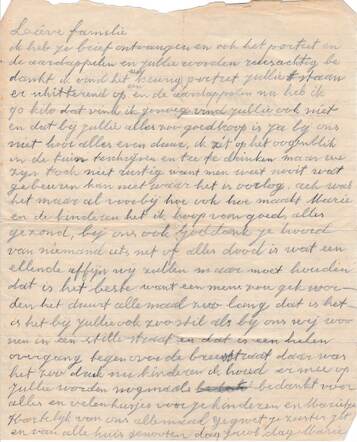 Lieve familie
ik heb je brief ontvangen en ook het portret en
de aardappelen en jullie worden reusachtig be
dankt ik vind het een keurig portret jullie staan
er schitterend op en de aardappelen na heb ik
70 kilo dat vind ik genoeg vind jullie ook niet
en dat bij jullie alles zoo goedkoop is ja bij ons
niet hoor alles even duur, ik zit op het oogenblik
in de tuin te schrijven en tee te drinken maar we
zijn toch niet rustig want men weet nooit wat
gebeuren kan niet waar het is oorlog, ach was
het maar al voorbij hoe ook hoe maakt Marie
en de kinderen het ik hoop voor goed, alles
gezond, bij ons ook God dank je hoord
van niemand iets net of alles dood is wat een
ellende affijn wij zullen maar moet houden
dat is het beste want een mens zou gek wor
den het duurt allemaal zoo lang dat is het
is het bij jullie ook zoo stil als bij ons wij woo
nen in een stille straat en dat is een heelen
overgang tegenover de breestraat daar was
het zoo druk nu kinderen ik houd er mee op
jullie worden nogmaals bedankt voor
alles en vele kusjes voor je kinderen en Marietje
Hartelijk van ons allemaal gegroet je zuster
en van alle huisgenooten dag Jacob dag Marie